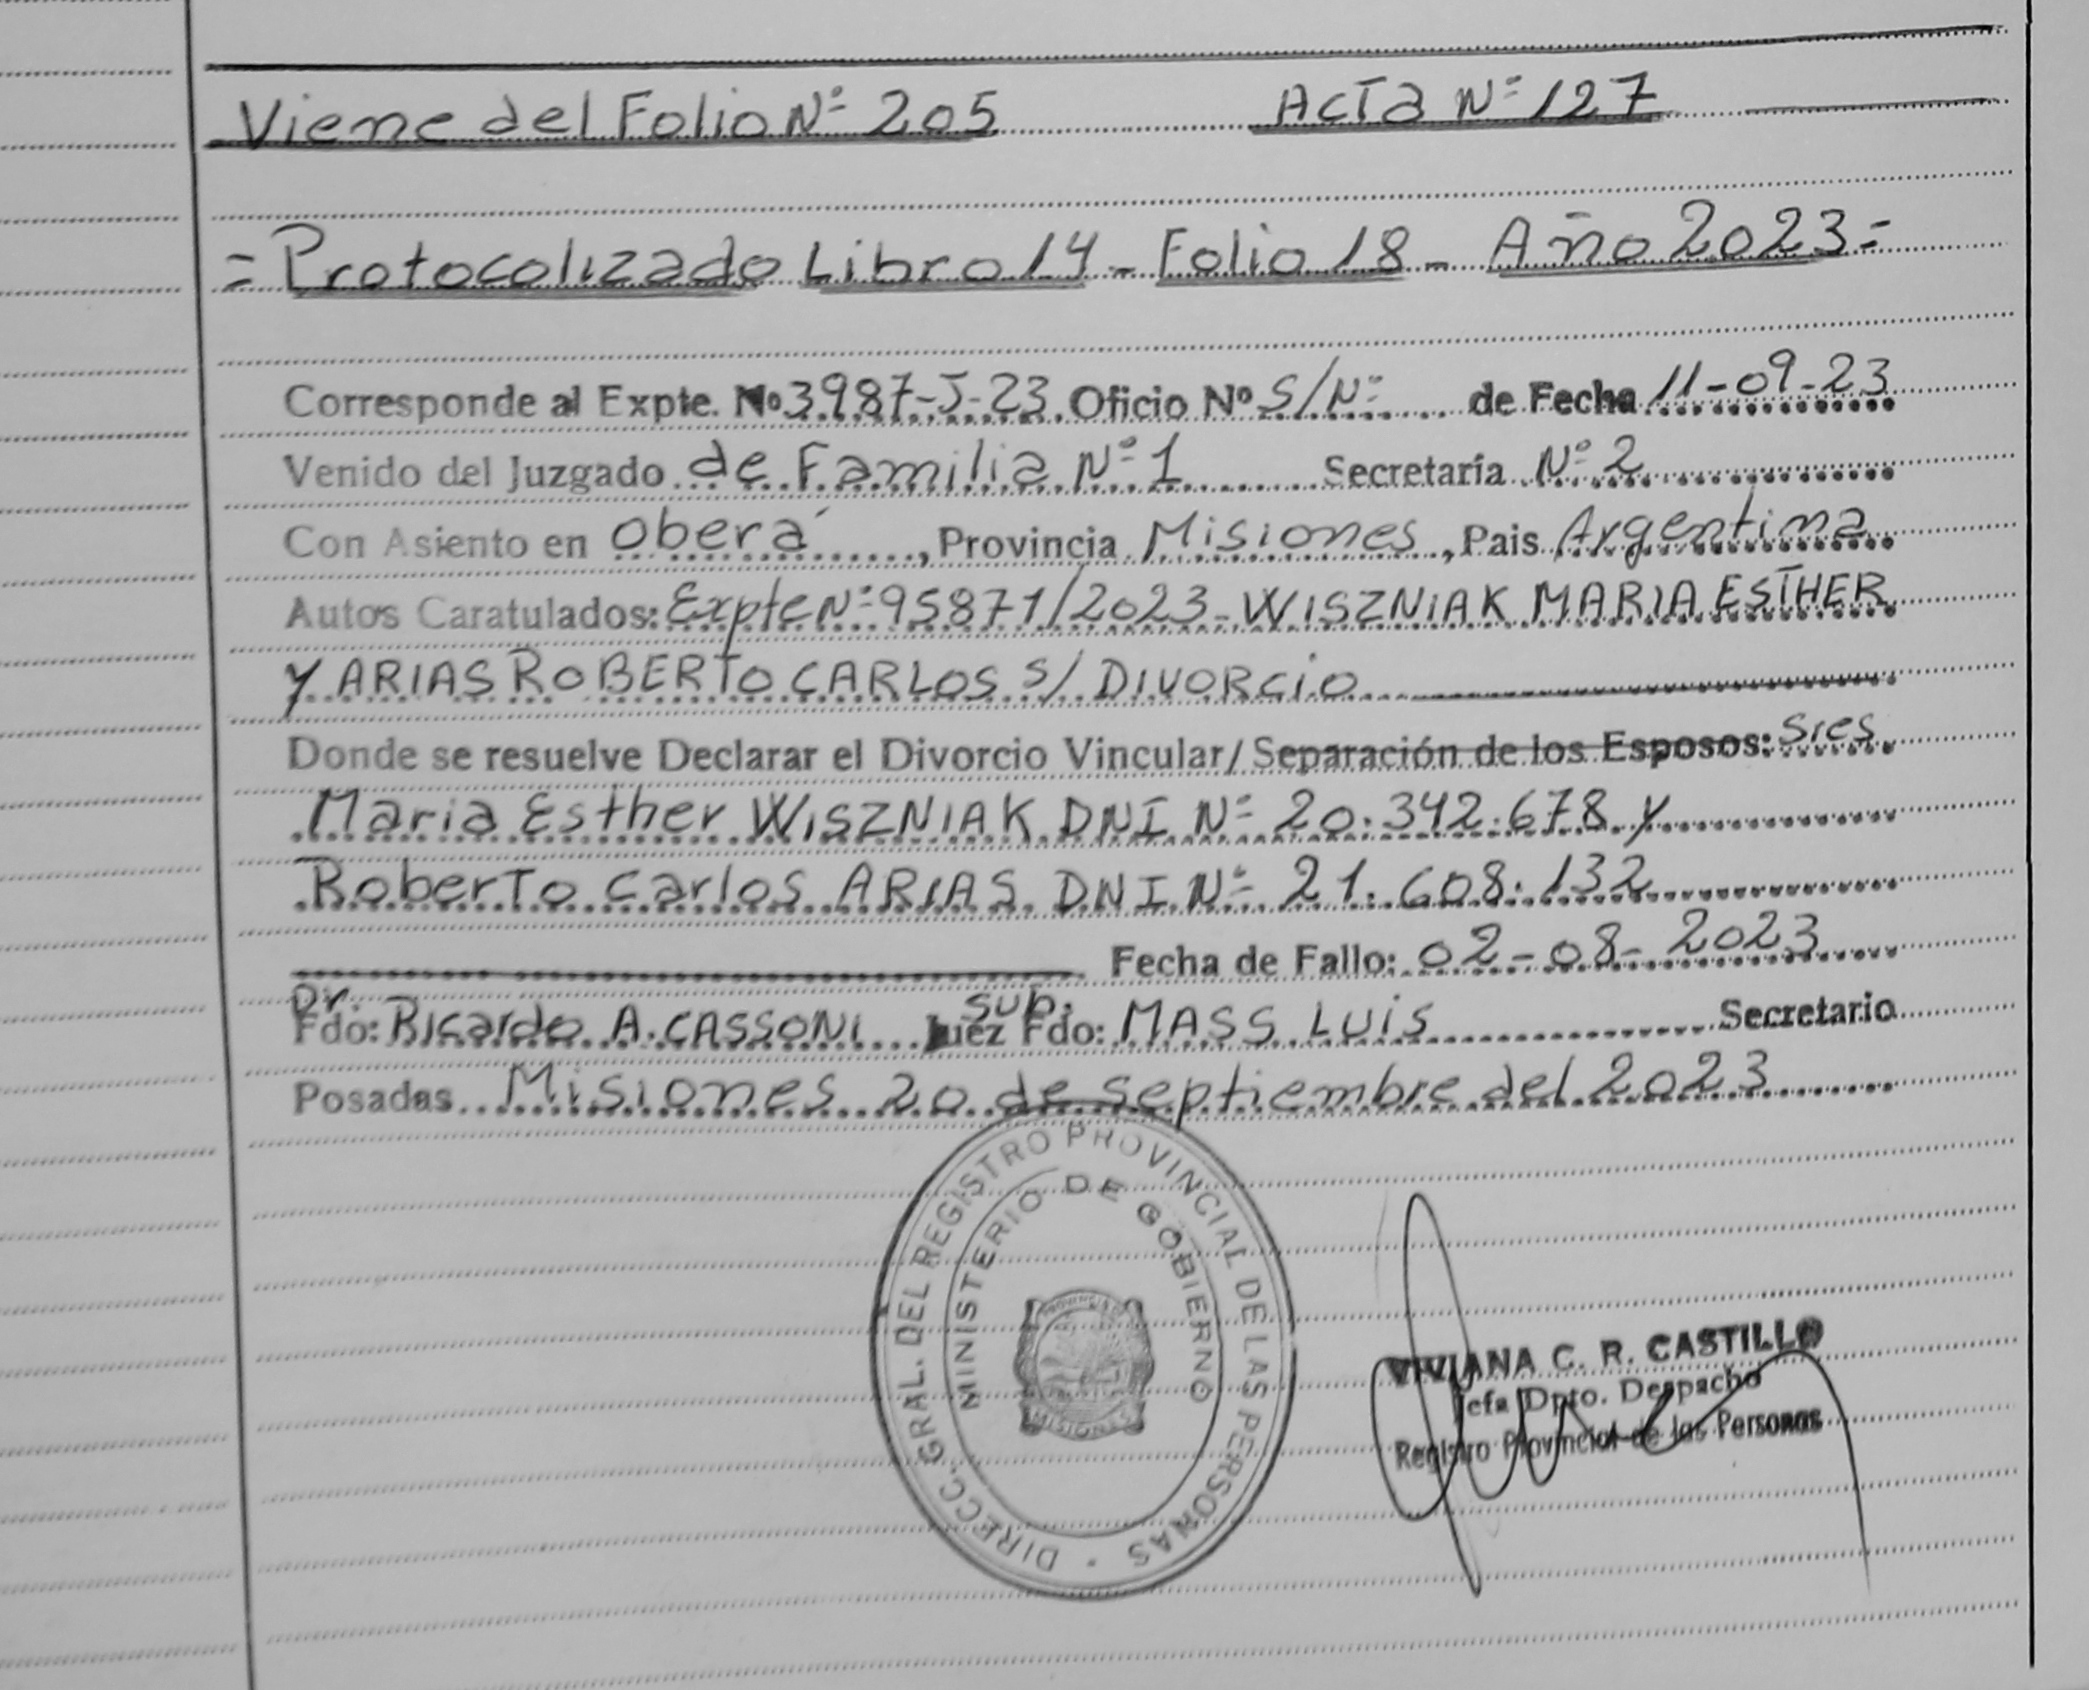 Viene del Folio Nº 205 Acta Nº 127
= Protocolizado Libro 14 - Folio 18 - Año 2023 =
Corresponde al Expte. Nº 3987-J-23 Oficio Nº S/Nº de Fecha 11-09-23
Venido del Juzgado de Familia Nº 1 Secretaría Nº 2
Con Asiento en Oberá, Provincia Misiones, Pais Argentina
Autos Caratulados: Expte Nº 95871/2023 - WISZNIAK MARIA ESTHER
Y ARIAS ROBERTO CARLOS S/ DIVORCIO
Donde se resuelve Declarar el Divorcio Vincular/ Separación de los Esposos: Sres
Maria Esther WISZNIAK DNI Nº 20.342.678 y
Roberto Carlos ARIAS DNI Nº 21.608.132
Fecha de Fallo: 02-08-2023
Dr. sub.
Fdo: Ricardo A. CASSONI Juez Fdo: MASS LUIS Secretario
Posadas Misiones 20 de septiembre del 2023
DIRECC. GRAL. DEL REGISTRO PROVINCIAL DE LAS PERSONAS
MINISTERIO DE GOBIERNO
PROVINCIA DE
MISIONES
VIVIANA C. R. CASTILLO
Jefa Dpto. Despacho
Registro Provincial de las Personas